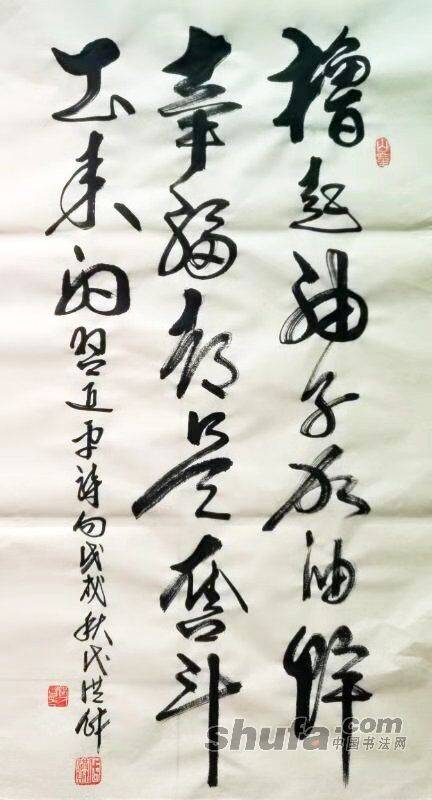 擼起袖子加油幹
幸福都是奋斗
出来的 習近平詩句戊戌秋
shufa.com
中国书法网